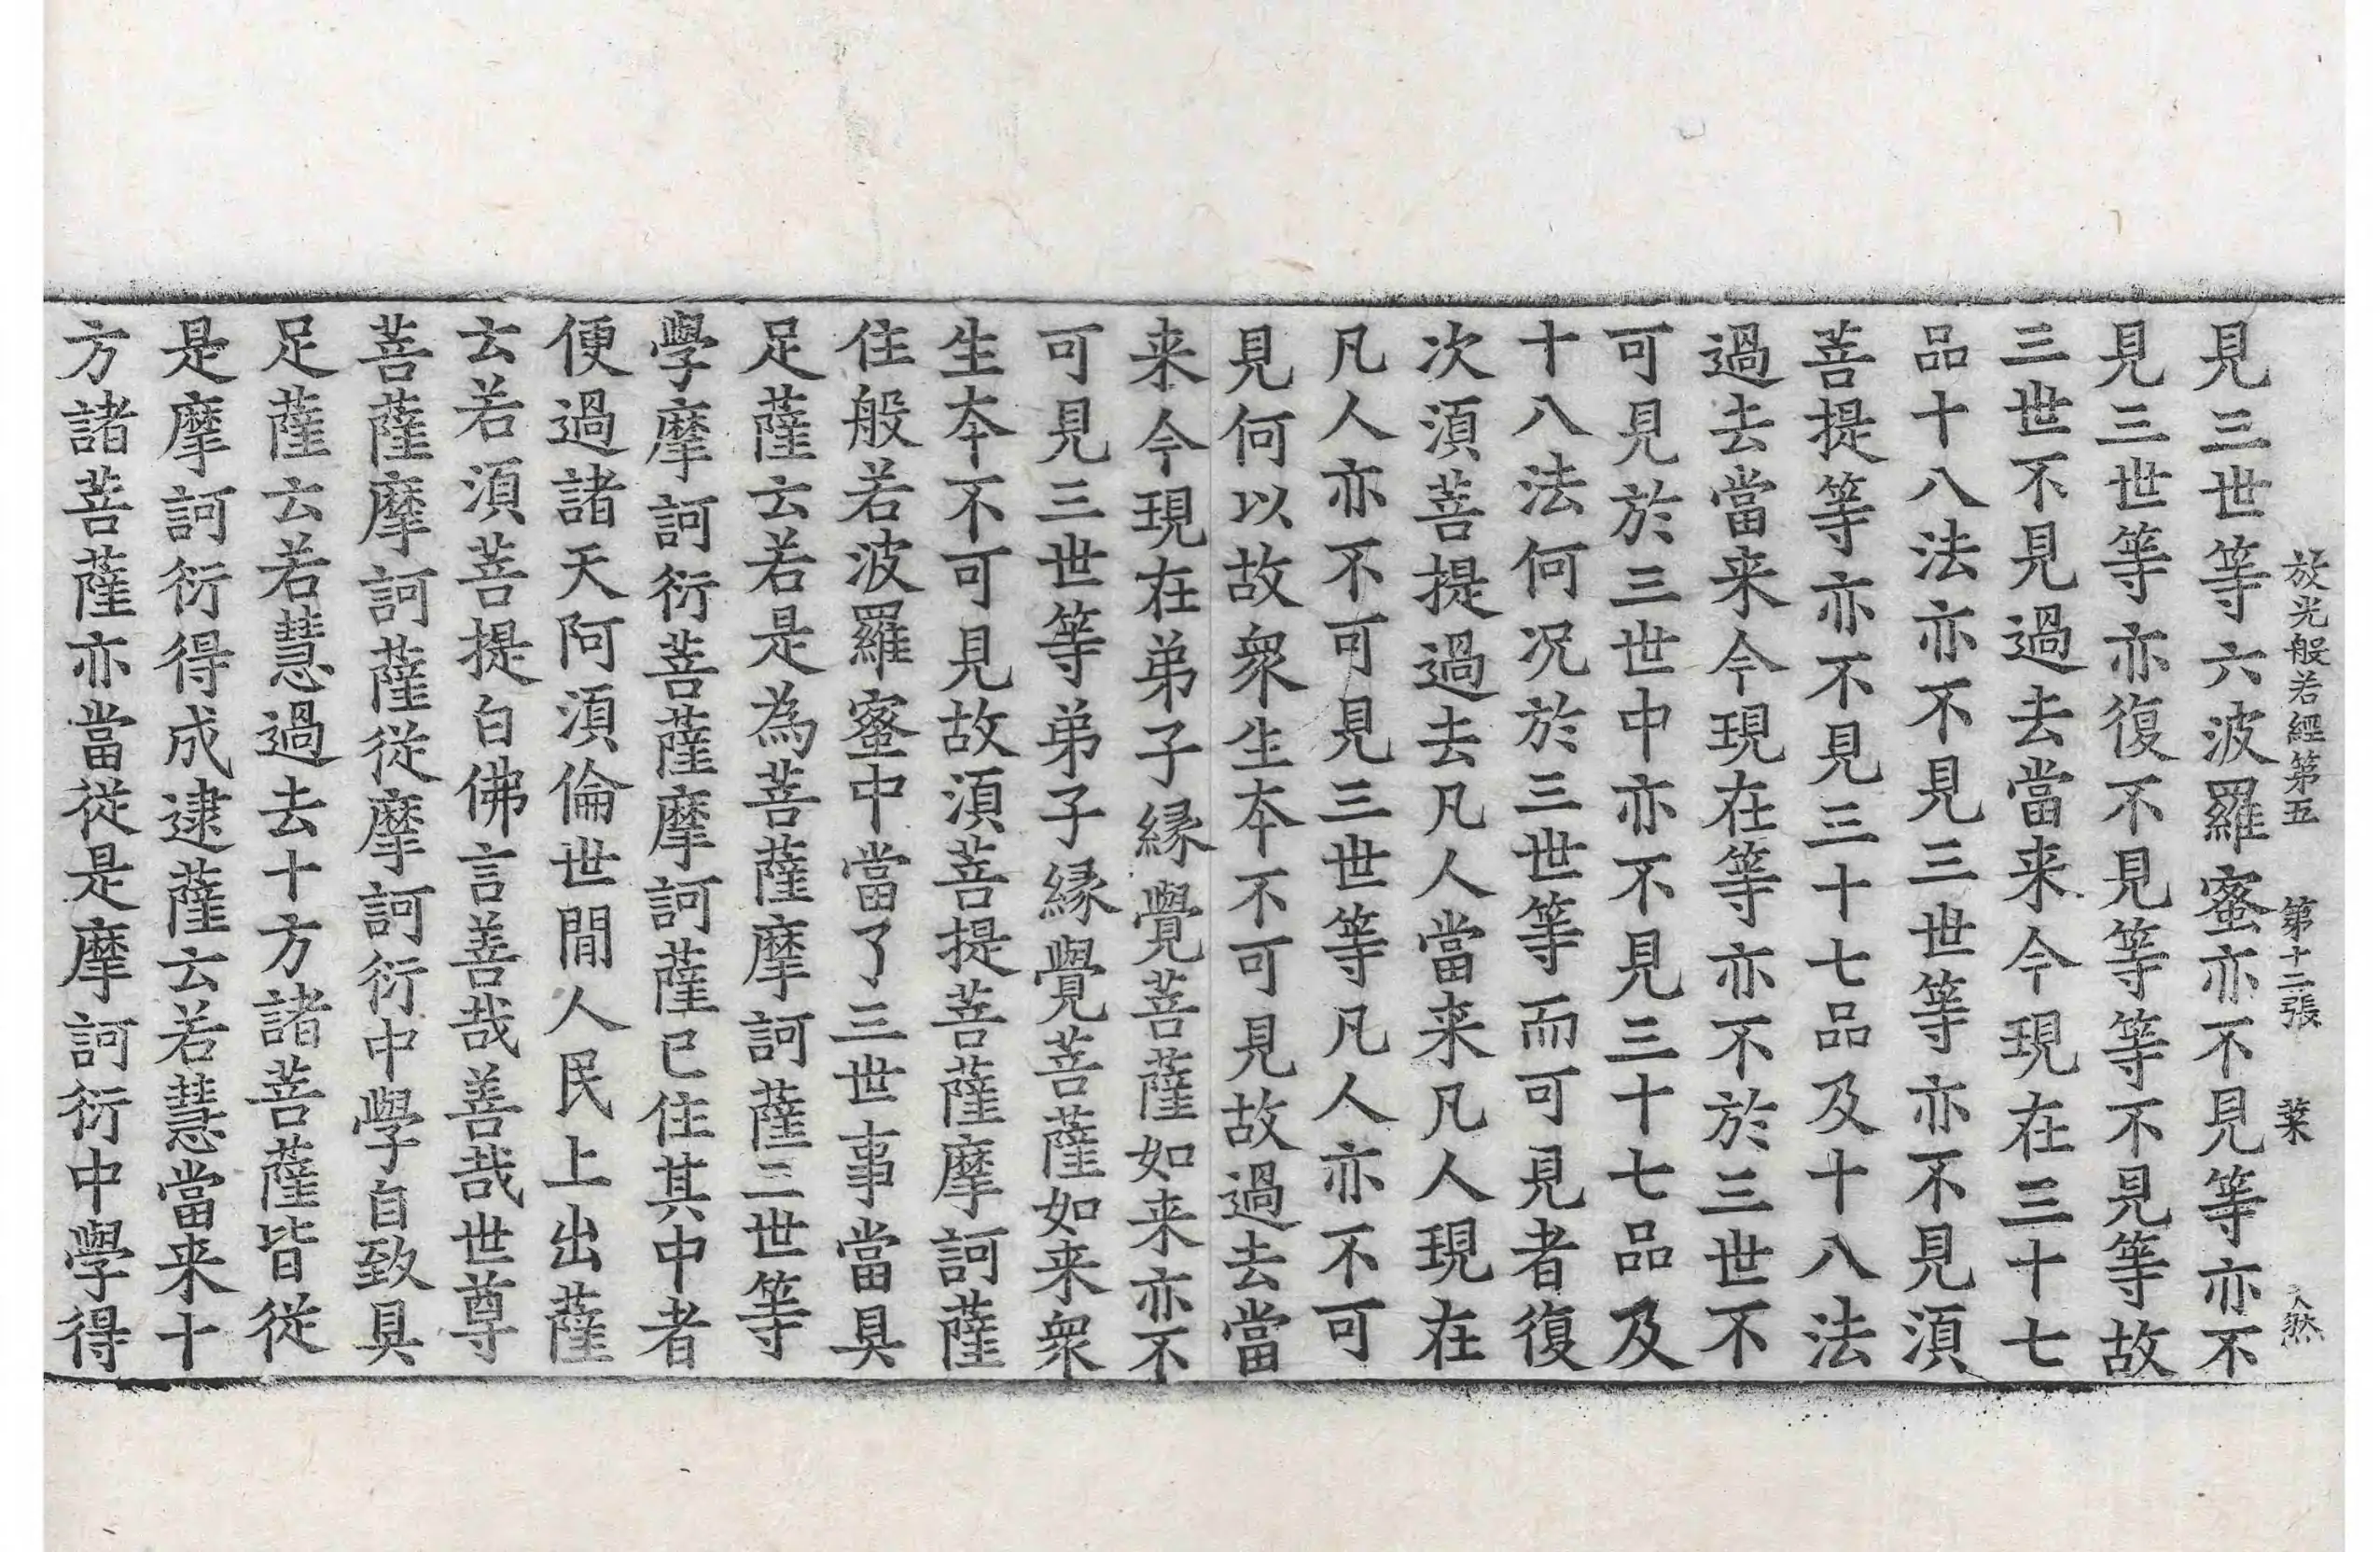 放光般若經第五　第十二張　葉　天然
見三世等六波羅蜜亦不見等亦不
見三世等亦復不見等等不見等故
三世不見過去當来今現在三十七
品十八法亦不見三世等亦不見須
菩提等亦不見三十七品及十八法
過去當来今現在等亦不於三世不
可見於三世中亦不見三十七品及
十八法何况於三世等而可見者復
次須菩提過去凡人當来凡人現在
凡人亦不可見三世等凡人亦不可
見何以故衆生夲不可見故過去當
来今現在弟子縁覺菩薩如来亦不
可見三世等弟子縁覺菩薩如来衆
生夲不可見故須菩提菩薩摩訶薩
住般若波羅蜜中當了三世事當具
足薩云若是為菩薩摩訶薩三世等
學摩訶衍菩薩摩訶薩已住其中者
便過諸天阿須倫世間人民上出薩
云若須菩提白佛言善哉善哉世尊
菩薩摩訶薩從摩訶衍中學自致具
足薩云若慧過去十方諸菩薩皆從
是摩訶衍得成逮薩云若慧當来十
方諸菩薩亦當從是摩訶衍中學得